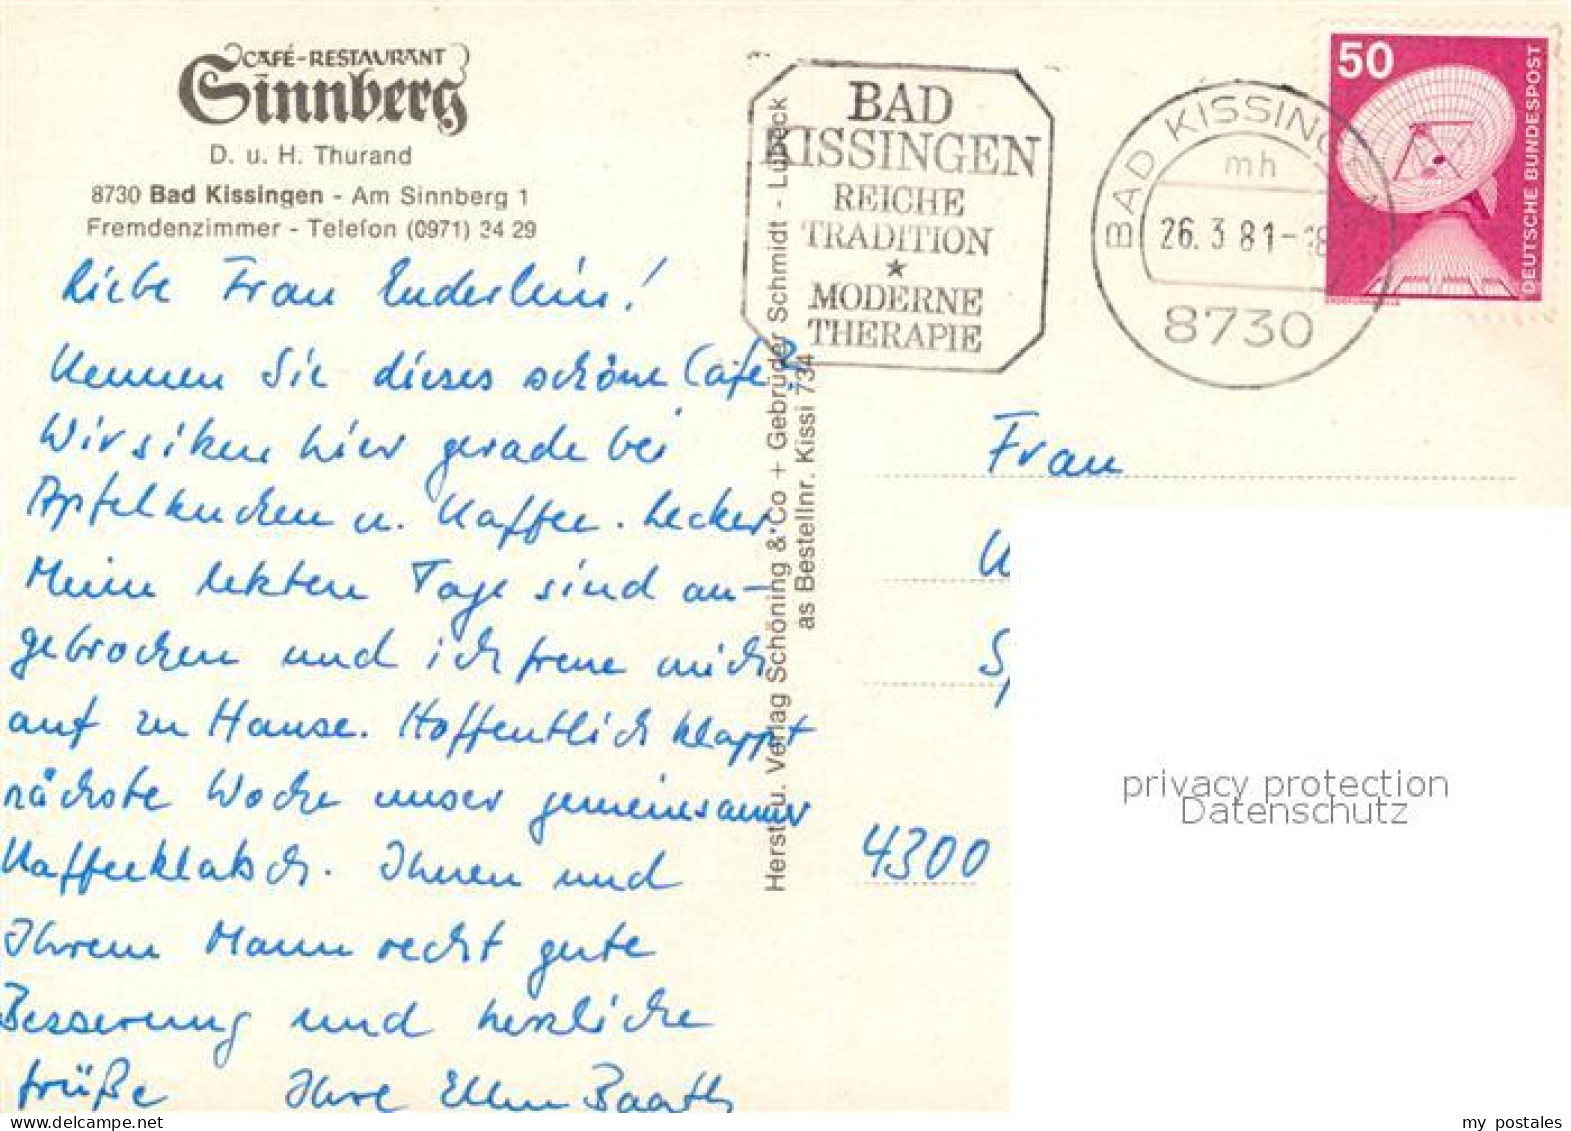 CAFÉ-RESTAURANT
Sinnberg
D. u. H. Thurand
8730 Bad Kissingen - Am Sinnberg 1
Fremdenzimmer - Telefon (0971) 34 29
Liebe Frau Enderlein!
Kennen Sie dieses schöne Café?
Wir sitzen hier gerade bei
Apfelkuchen u. Kaffee. Lecker
Meine letzten Tage sind an-
gebrochen und ich freue mich
auf zu Hause. Hoffentlich klappt
nächste Woche unser gemeinsamer
Kaffeeklatsch. Ihnen und
Ihrem Mann recht gute
Besserung und herzliche
Grüße Ihre Ellen
Herst. u. Verlag Schöning & Co + Gebrüder Schmidt - Lübeck
as Bestellnr. Kissi 734
BAD
KISSINGEN
REICHE
TRADITION
★
MODERNE
THERAPIE
BAD KISSINGEN 1
mh
26. 3. 81-18
8730
50
DEUTSCHE BUNDESPOST
Frau
4300
privacy protection
Datenschutz
my postales